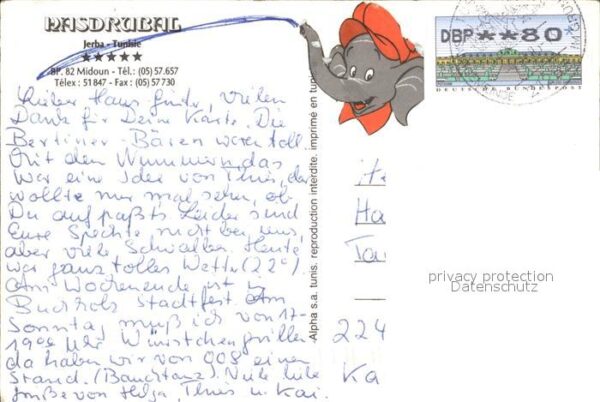 HASDRUBAL
Jerba - Tunisie
★★★★★
BP. 82 Midoun - Tél.: (05) 57.657
Télex : 51847 - Fax : (05) 57730
Lieber Hans Fritz, vielen
Dank für Deine Karte. Die
Berliner-Bären waren toll.
Mit den Nummern, das
war eine Idee von Thies, der
wollte nur mal sehen, ob
Du aufpaßt. Leider sind
Eure Spechte nicht bei uns,
aber viele Schwalben. Heute
war ganz tolles Wetter (22°)
Am Wochenende ist in
Buchholz Stadtfest. Am
Sonntag muß ich von 17-
19 00 Uhr Würstchen grillen
da haben wir von 008 einen
Stand. (Bauchtanz). Viele liebe
Grüße von Helga, Thies u. Kai.
Alpha s.a. tunis. reproduction interdite. imprimé en tuni
DBP **80
DEUTSCHE BUNDESPOST
Ha
Tan
224
Ka
privacy protection
Datenschutz